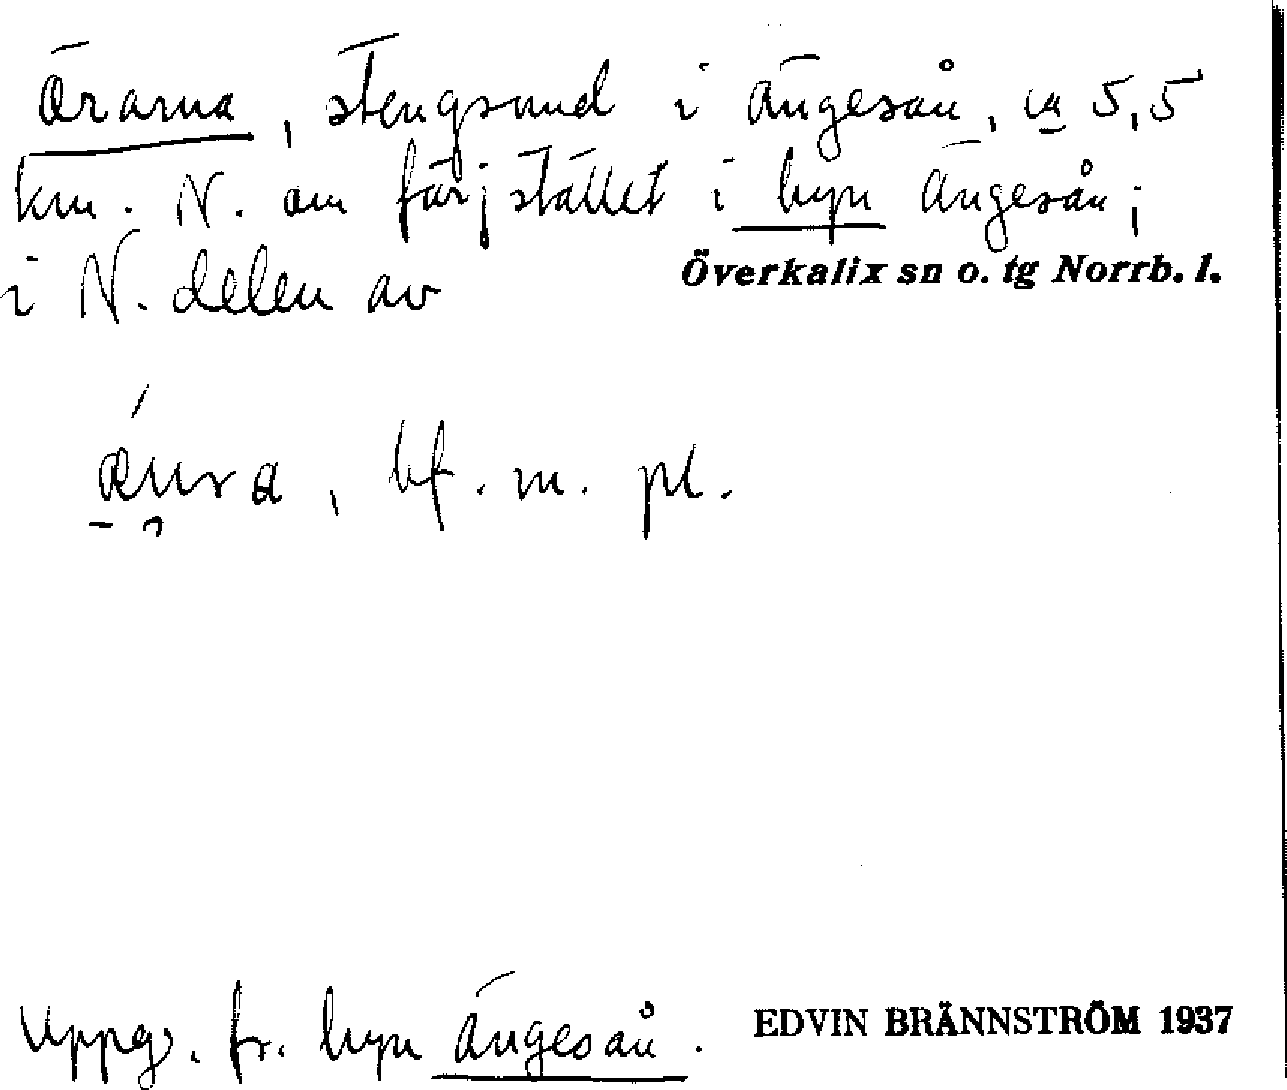 Örarna, stengrund i Ängesån, ca 5,5
km. N. om färjstället i byn Ängesån;
i N. delen av
Överkalix sn o. tg Norrb. l.
bf. m. pl.
Uppg. fr. byn Ängesån.
EDVIN BRÄNNSTRÖM 1937